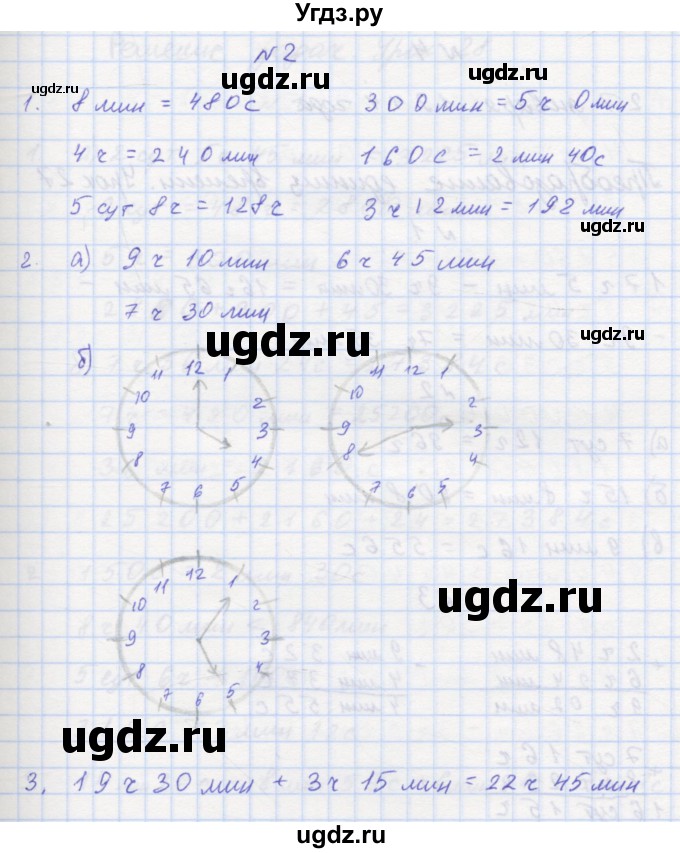 Угдз.ру
№2
1. 8 мин = 480с 300 мин = 5 ч 0 мин
4 ч = 240 мин 160 с = 2 мин 40с
5 сут 8ч = 128ч 3 ч 12 мин = 192 мин
2. а) 9 ч 10 мин 6 ч 45 мин
7 ч 30 мин
ugdz.ru ugdz.ru
б)
12 1 2 3 4 5 6 7 8 9 10 11
12 1 2 3 4 5 6 7 8 9 10 11
ugdz.ru
12 1 2 3 4 5 6 7 8 9 10 11
ugdz.ru ugdz.ru
3. 19 ч 30 мин + 3ч 15 мин = 22 ч 45 мин
ugdz.ru